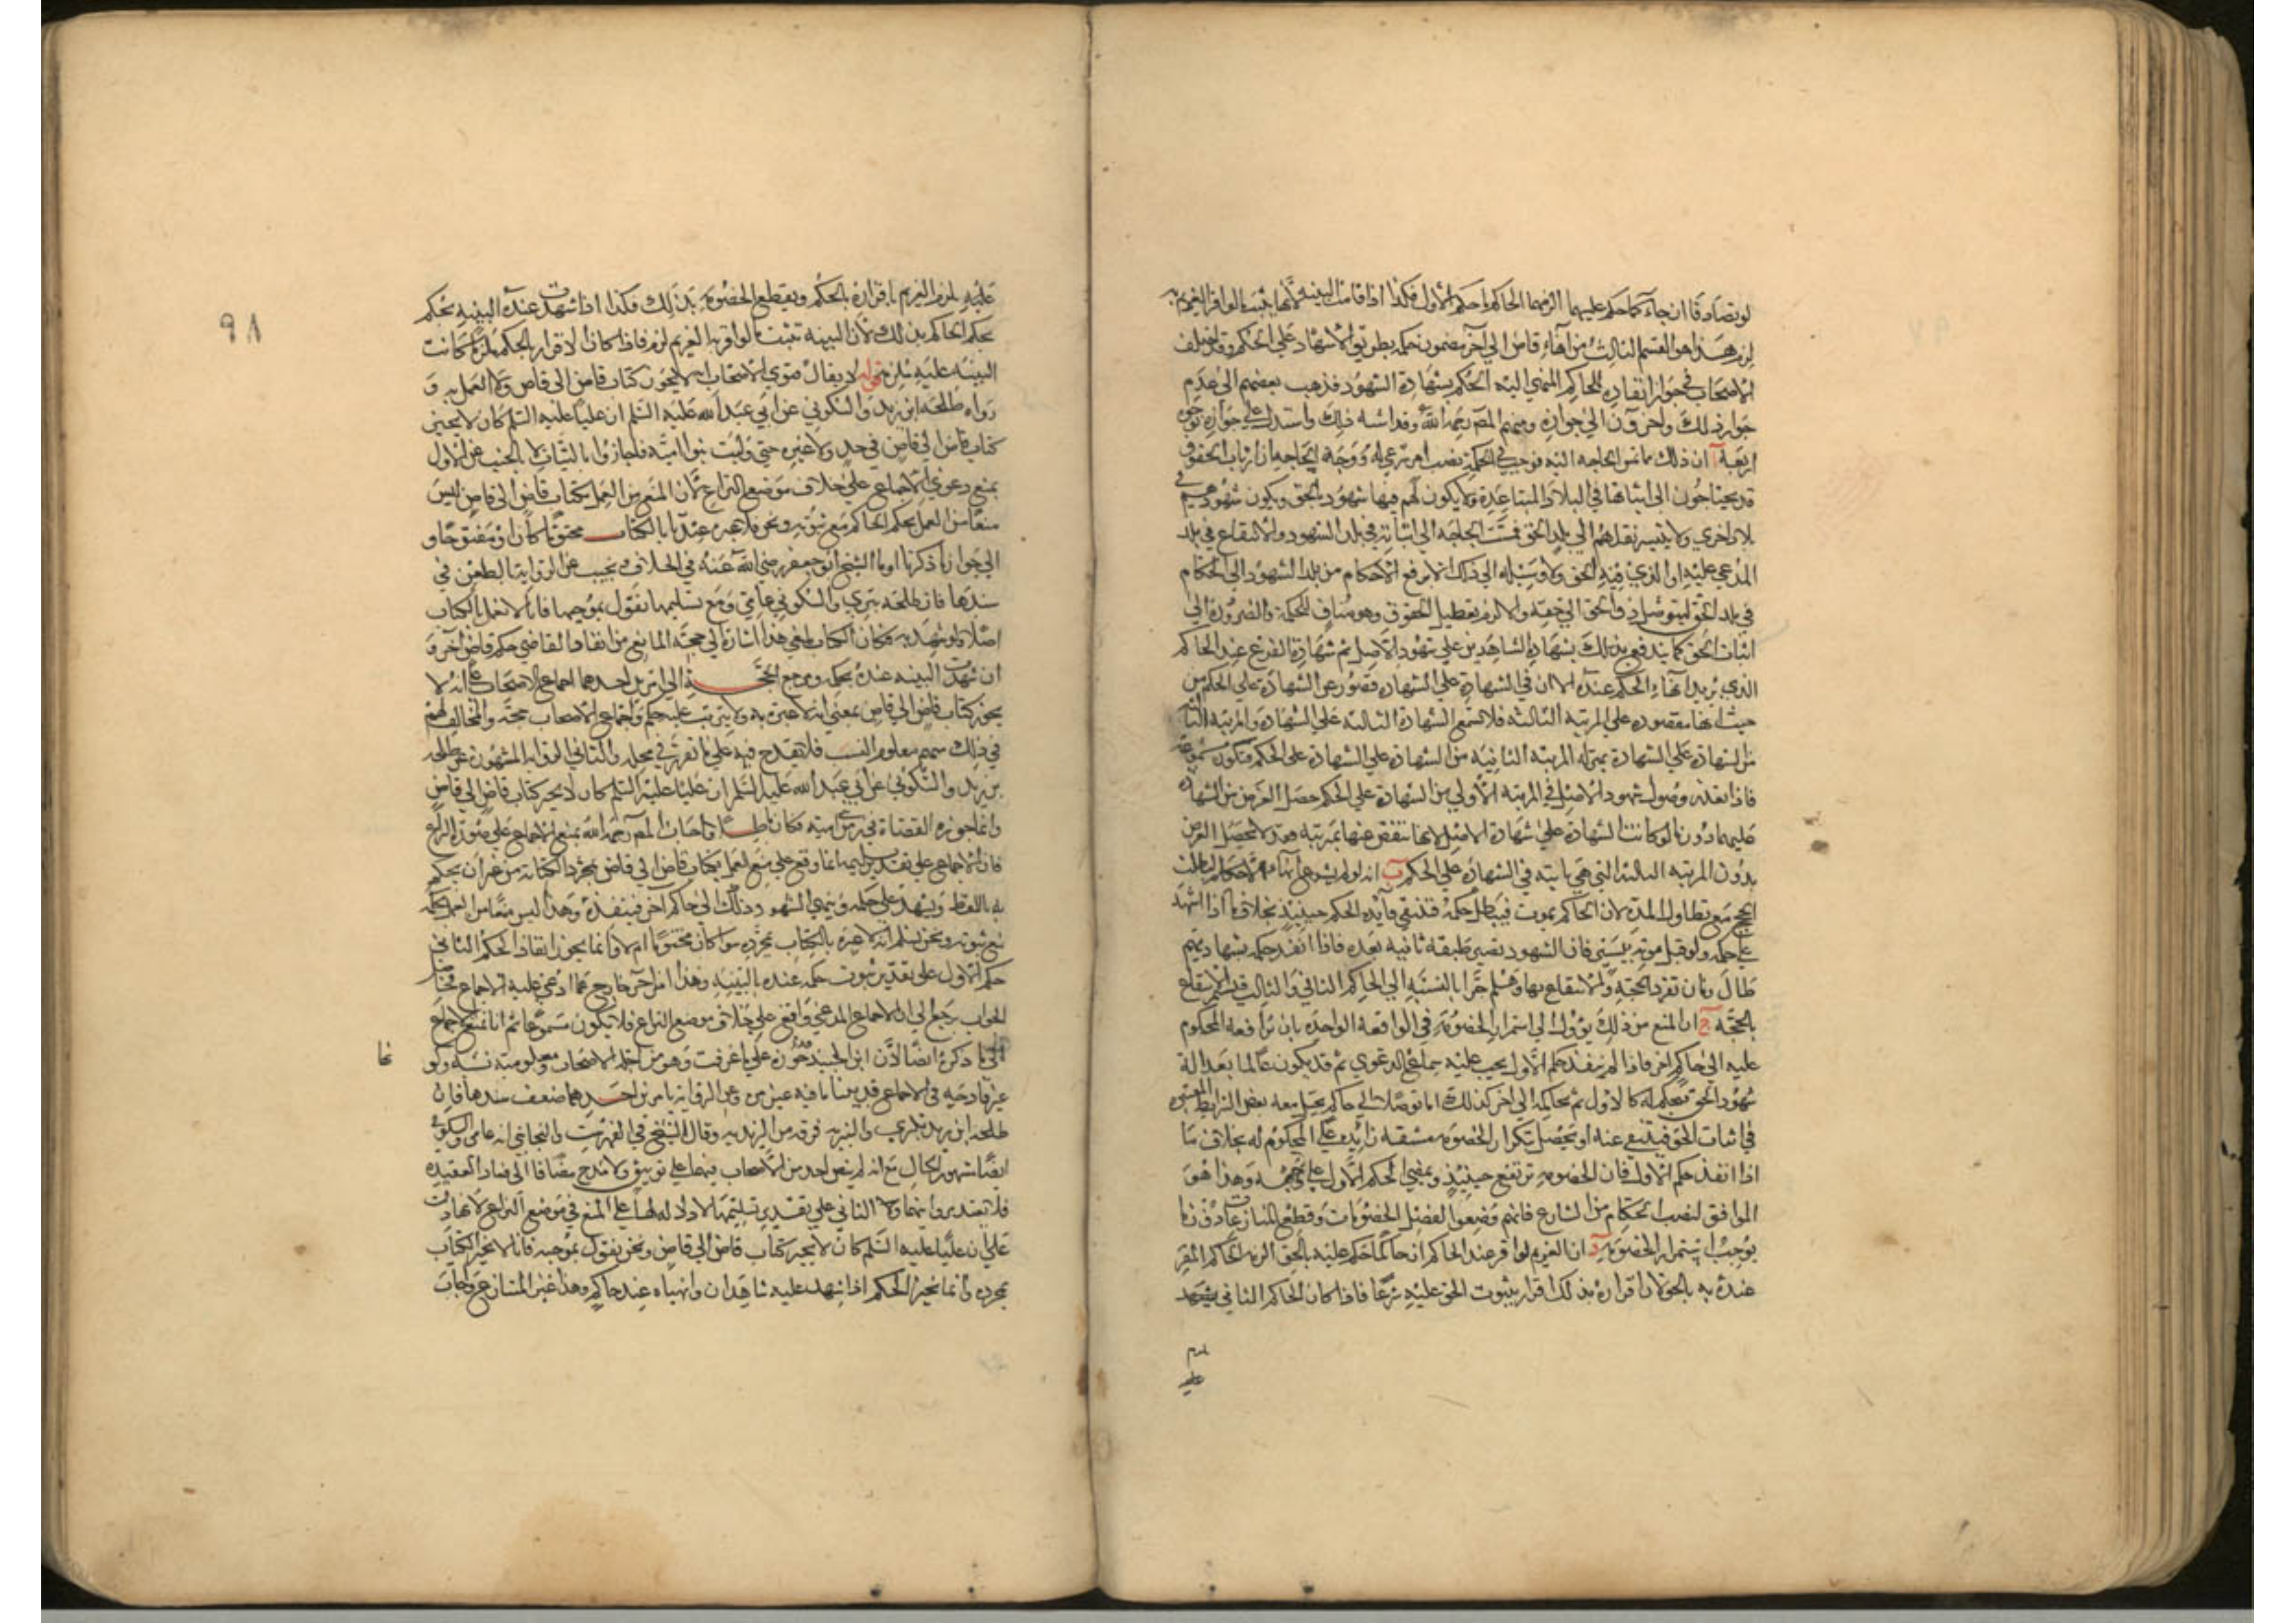 لو تصادقا ان حاكما حكم عليهما الزمهما الحاكم ما حكم الاول فكذا اذا قامت البينة لانها تثبت ما لو اقر الغريم به
لزم هذا هو القسم الثالث من انهاء قاض الى آخر مضمون حكمه بطريق الاشهاد على الحكم وقد اختلف
الاصحاب في جواز انفاذ الحاكم المنهى اليه الحكم بشهادة الشهود فذهب بعضهم الى عدم
جواز ذلك وآخرون الى جوازه ومنهم المص رحمه الله وقد اسند ذلك واستدل على جوازه بوجوه
اربعة آ ان ذلك مما تمس الحاجة اليه فوجب في الحكمة نصب امر شرعي له ووجه الحاجة ان ارباب الحقوق
قد يحتاجون الى اثباتها في البلاد المتباعدة ولا يكون لهم فيها شهود بالحق ويكون شهودهم في
بلاد اخرى ولا يتيسر نقلهم الى بلد الحق فمست الحاجة الى اثباته في بلد الشهود والانتفاع في بلد
المدعى عليه او الذي فيه الحق ولا وسيلة الى ذلك الا رفع الاحكام من بلد الشهود الى الحكام
في بلد الحق ليتوصل ذو الحق الى حقه والا لزم تعطيل الحقوق وهو مناف للحكمة والضرورة الى
اثبات الحق كما يندفع بذلك بشهادة الشاهدين على شهود الاصل ثم شهادة الفرع عند الحاكم
الذي يريد انهاء الحكم عنده الا ان في الشهادة على الشهادة قصور عن الشهادة على الحكم من
حيث انها مقصورة على المرتبة الثالثة فلا تسمع الشهادة الثالثة على الشهادة والمرتبة الثانية
من الشهادة على الشهادة بمنزلة المرتبة الثانية من الشهادة على الشهادة على الحكم فتكون مسموعة
فاذا تعذر وصول شهود الاصل في المرتبة الاولى من الشهادة على الحكم حصل الغرض من الشهادة
عليهما دون ما لو كانت الشهادة على شهادة الاصل لانها تنقص عنها بمرتبة فقد لا يحصل الغرض
بدون المرتبة الثالثة التي هي ثابتة في الشهادة على الحكم ب انه لو لم يشرع انهاء الاحكام لبطلت
الحجج مع تطاول المدة لان الحاكم يموت فيبطل حكمه فتنتفي فائدة الحكم حينئذ بخلاف ما اذا اشهد
على حكمه ولو قبل موته بيسير فان الشهود تصير طبقة ثانية بعده فاذا انفذ حكمه بشهادتهم
طال زمان تفرد الحجة والانتفاع بها وهلم جرا بالنسبة الى الحاكم الثاني والثالث فيثمر الانتفاع
بالحجة ج ان المنع من ذلك يؤول الى استمرار الخصومة في الواقعة الواحدة بان ترافعه المحكوم
عليه الى حاكم آخر فاذا لم ينفذ حكم الاول يجب عليه سماع الدعوى ثم قد يكون عالما بعدالة
شهود الحق فيحكم له كالاول ثم يحاكمه الى آخر كذلك اما توصلا الى حاكم يختل معه بعض الشرايط المعتبرة
في اثبات الحق فينتفي عنه او يحصل بتكرار الخصومة مشقة زايدة على المحكوم له بخلاف ما
اذا انفذ حكم الاول فان الخصومة ترتفع حينئذ ويمضي الحكم الاول على نهجه وهذا هو
الموافق لنصب الحكام من الشارع فانهم وضعوا لفصل الخصومات وقطع المنازعات دون ما
يوجب استمرار الخصومة د ان الغريم لو اقر عند الحاكم ان حاكما حكم عليه بالحق الزمه الحاكم المقر
عنده به بالحق لان اقراره بذلك اقرار بثبوت الحق عليه شرعا فاذا كان الحاكم الثاني
عليه يلزم الغريم باقراره بالحكم ويقطع الخصومة بذلك فكذا اذا شهدت عنده البينة بحكم
يحكم الحاكم بذلك لان البينة تثبت ما لو اقر به الغريم لزم فاذا كان الاقرار بالحكم ملزما كانت
البينة عليه تلزم قوله لا يقال فتوى الاصحاب انه لا يجوز كتاب قاض الى قاض ولا العمل به و
رواه طلحة ابن زيد والسكوني عن ابي عبد الله عليه السلم ان عليا عليه السلم كان لا يجيز
كتاب قاض الى قاض في حد ولا غيره حتى وليت بنو امية فاجازوا بالبينات لانا نجيب عن الاول
بمنع دعوى الاجماع على خلاف موضع النزاع لان المنع من العمل بكتاب قاض الى قاض ليس
منعا من العمل بحكم الحاكم مع ثبوته ونحن فلا عبرة عندنا بالكتاب مختوما كان او مفتوحا و
الى جواز ما ذكرنا اومأ الشيخ ابو جعفر رضي الله عنه في الخلاف ونجيب عن الرواية بالطعن في
سندها فان طلحة بتري والسكوني عامي ومع تسليمها نقول بموجبها فانا لا نعمل بالكتاب
اصلا ولو شهد به فكان الكتاب ملغى هذا اشارة الى حجة المانع من انفاذ القاضي حكم قاض آخر و
ان شهدت البينة عنده بحكمه ومرجع الحجة الى امرين احدهما اجماع الاصحاب على انه لا
يجوز كتاب قاض الى قاض بمعنى انه لا عبرة به ولا يترتب عليه حكم واجماع الاصحاب حجة والمخالف لهم
في ذلك منهم معلوم النسب فلا يقدح فيه على ما تقرر في محله والثاني الرواية المشهورة عن طلحة
بن زيد والسكوني عن ابي عبد الله عليه السلم ان عليا عليه السلم كان لا يجيز كتاب قاض الى قاض
وانما جوزه القضاة في زمن بني امية فكان باطلا واجاب المص رحمه الله بمنع الاجماع على صورة النزاع
فان الاجماع على تقدير تسليمه انما وقع على منع العمل بكتاب قاض الى قاض بمجرد الكتابة من غير ان يحكم
به باللفظ ويشهد على حكمه وينهي الشهود وذلك الى حاكم آخر فينفذه وهذا ليس منعا من العمل بحكمه
مع ثبوته ونحن نسلم انه لا عبرة بالكتاب بمجرده سوا كان مختوما ام لا وانما يجوز انفاذ الحاكم الثاني
حكم الاول على تقدير ثبوت حكمه عنده بالبينة وهذا امر آخر خارج عما ادعي عليه الاجماع فحاصل
الجواب يرجع الى ان الاجماع المدعى واقع على خلاف موضع النزاع فلا يكون مسموعا ثم انا نمنع الاجماع
على ما ذكره ايضا لان ابن الجنيد جوزه على ما عرفت وهو من اجلة الاصحاب ومعلومية نسبه وكو
غير قادحة في الاجماع قد بينا ما فيه غير مرة وعن الرواية بامرين احدهما ضعف سندها فان
طلحة ابن زيد بتري والبترية فرقة من الزيدية وقال الشيخ في الفهرست والنجاشي انه عامي والسكوني
ايضا مشهور الحال مع انه لم ينص احد من الاصحاب فيهما على توثيق ولا مدح مضافا الى فساد العقيدة
فلا تعتد بروايتهما والثاني على تقدير تسليمها لا دلالة لها على المنع في موضع النزاع لانها دلت
على ان عليا عليه السلم كان لا يجيز كتاب قاض الى قاض ونحن نقول بموجبه فانا لا نجيز الكتاب
بمجرده وانما نجيز الحكم اذا شهد عليه شاهدان وانهياه عند حاكم وهذا غير المتنازع واجاب
٩٨